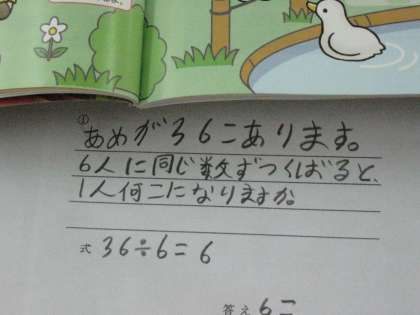 ①
あめが36こあります。
6人に同じ数ずつくばると、
1人何こになりますか。
式 36÷6=6
答え 6こ